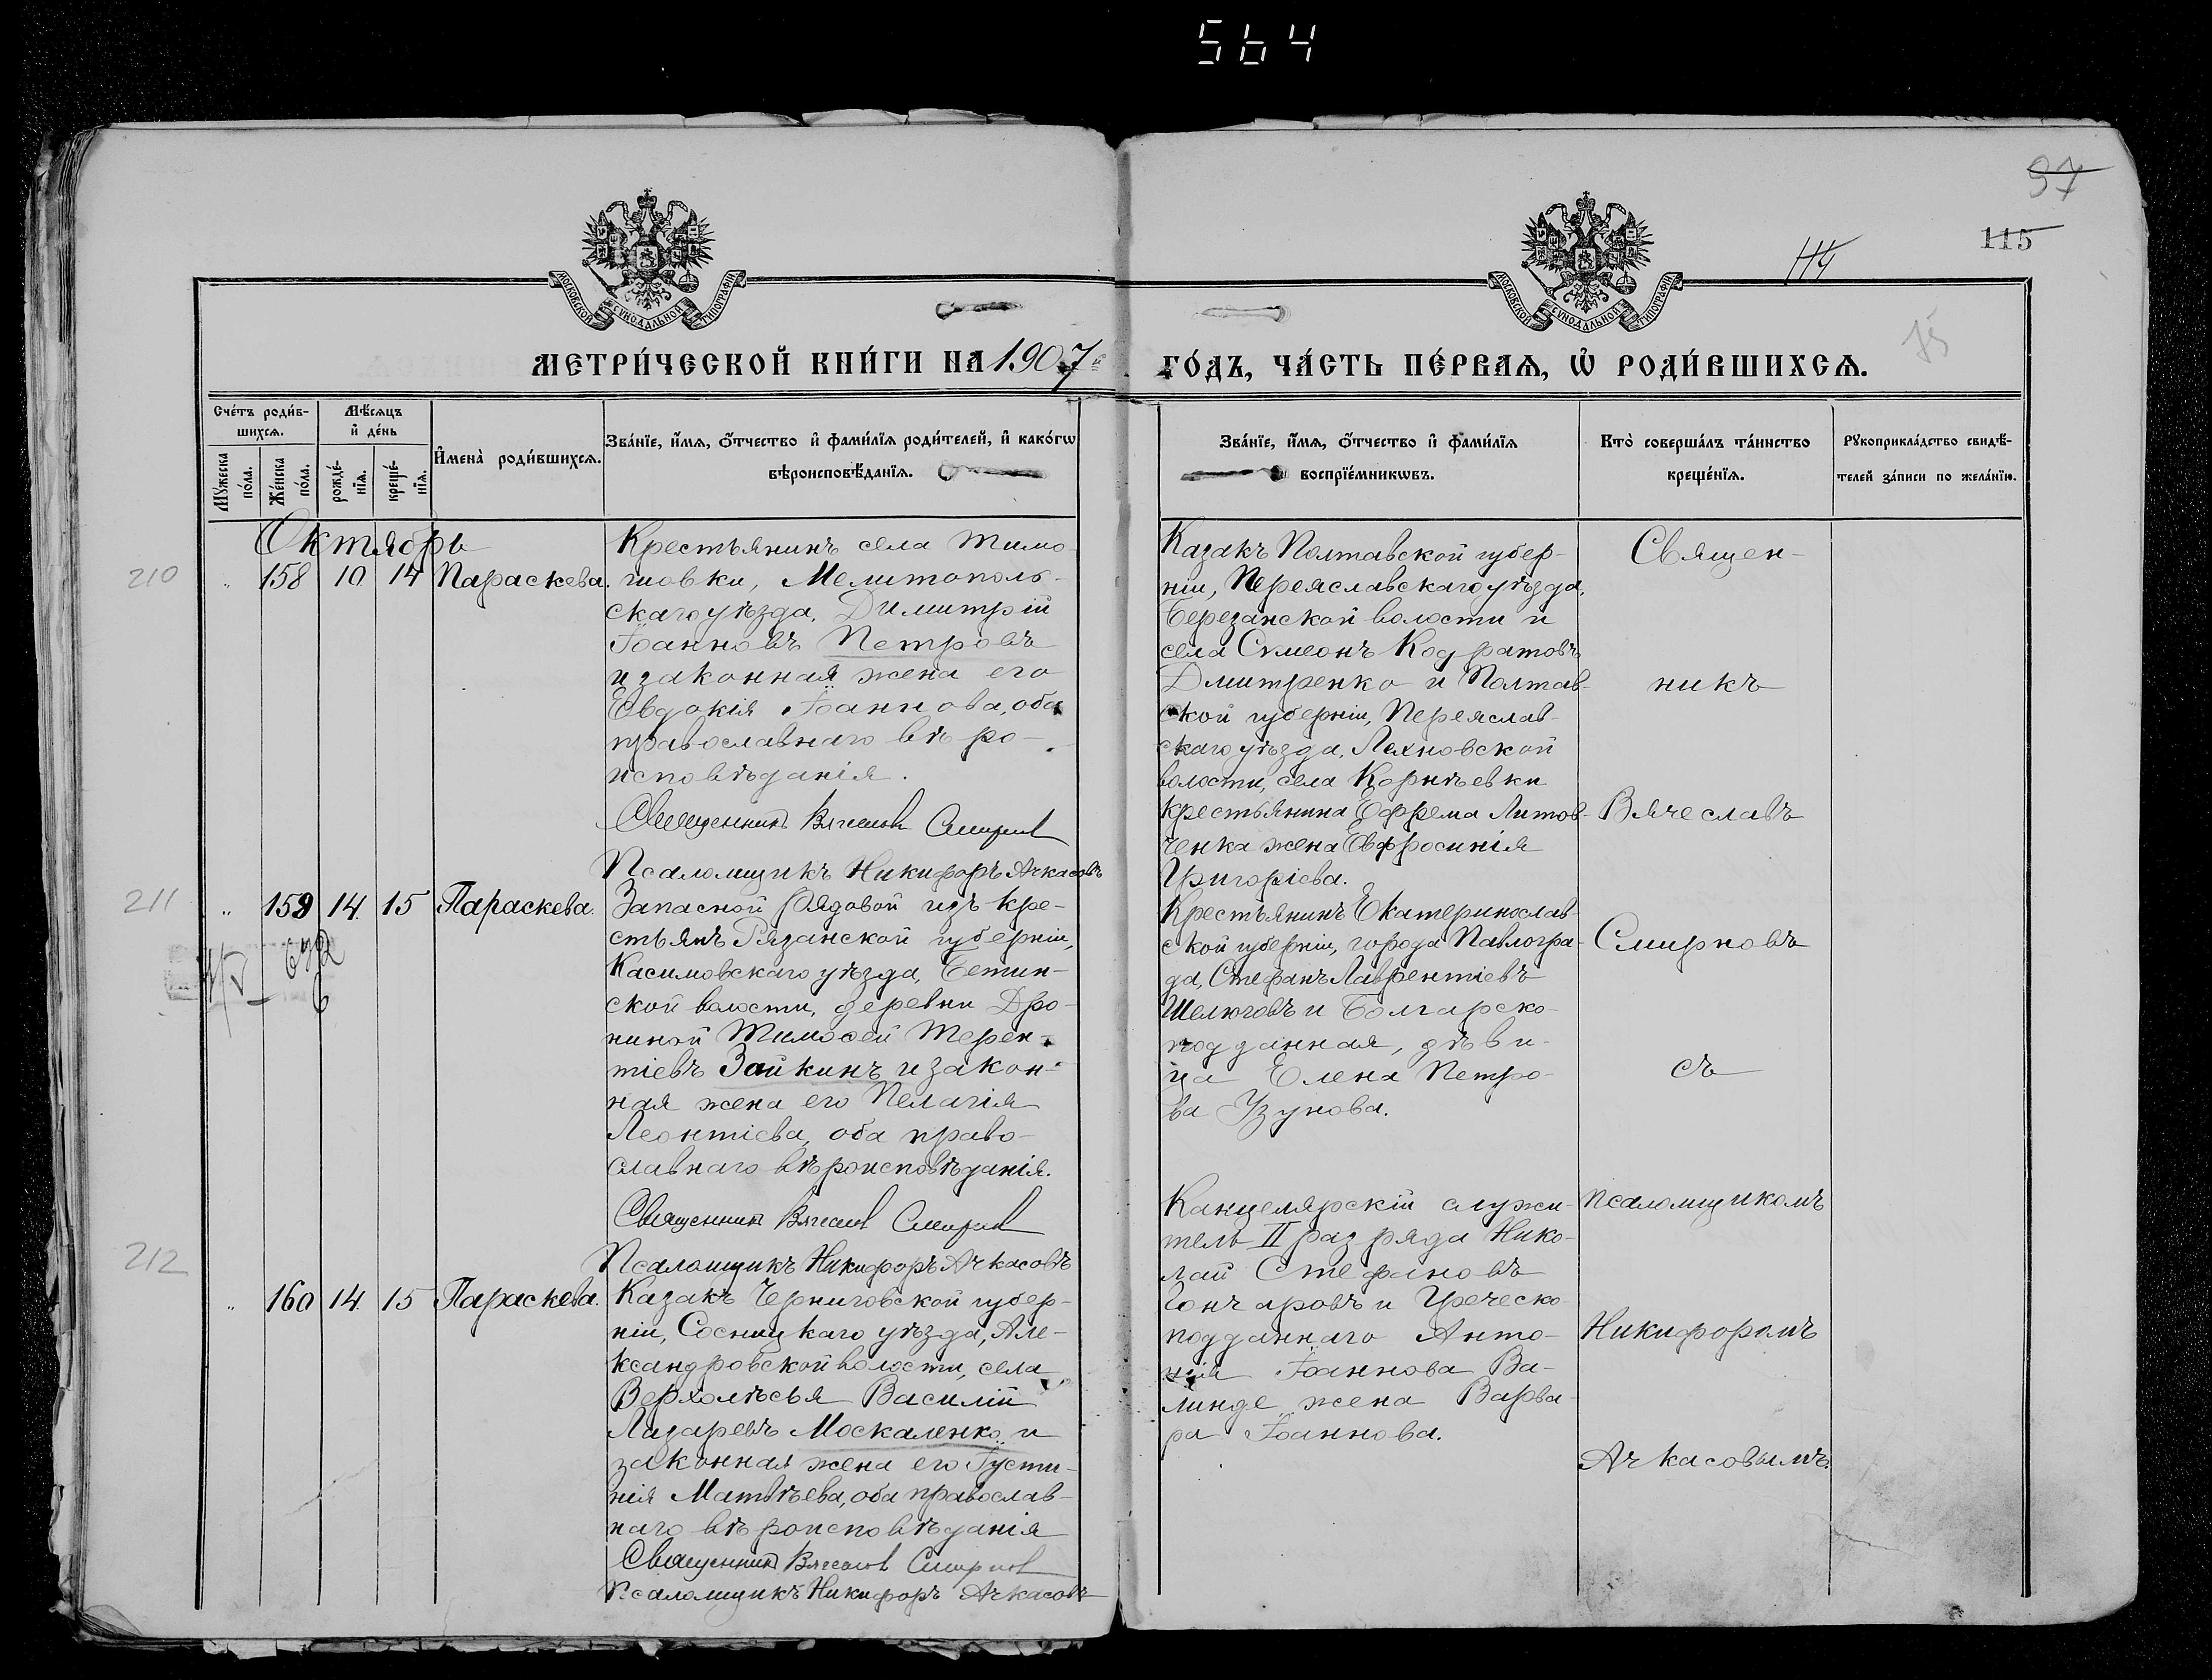 564
97
115
114
75
МОСКОВСКОЙ СѴНОДАЛЬНОЙ ТИПОГРАФІИ
МОСКОВСКОЙ СѴНОДАЛЬНОЙ ТИПОГРАФІИ
МЕТРИ́ЧЕСКОЙ КНИ́ГИ НА 1907
ГО́ДЪ, ЧА́СТЬ ПЕ́РВАѦ, Ѡ҆ РОДИ́ВШИХСѦ.
Счéтъ роди́в-
шихсѧ.
Мѣ́сѧцъ
и҆ де́нь
Мꙋ́жеска
по́ла.
Же́нска
по́ла.
рожде́-
нїѧ.
креще́-
нїѧ.
И҆мена̀ роди́вшихсѧ.
Зва́нїе, и҆́мѧ, ѻ҆́тчество и҆ фами́лїѧ роди́телей, и҆ како́гѡ
вѣроисповѣ́данїѧ.
Зва́нїе, и҆́мѧ, ѻ҆́тчество и҆ фами́лїѧ
воспрїе́мникѡвъ.
Кто̀ соверша́лъ та́инство
креще́нїѧ.
Рꙋкоприкла́дство свидѣ́-
телей за́писи по жела́нїю.
Октябрь
210 " 158 10 14 Параскева.
Крестьянинъ села Тимо-
шовки, Мелитополь-
скаго уѣзда, Димитрій
Іоанновъ Петровъ
и законная жена его
Евдокія Іоаннова, оба
православнаго вѣро-
исповѣданія.
Священникъ Вячеслав Смирнов
Псаломщикъ Никифоръ Ачкасовъ
Казакъ Полтавской губер-
ніи, Переяславскаго уѣзда,
Березанской волости и
села Симеонъ Кодратовъ
Дмитренко и Полтав-
ской губерніи, Переяслав-
скаго уѣзда, Ляховской
волости, села Корнѣевки
крестьянина Ефрема Литов-
ченка жена Евфросинія
Григоріева.
Священ-
никъ
Вячеславъ
Смирновъ
съ
псаломщикомъ
Никифоромъ
Ачкасовымъ.
211 " 159 14 15 Параскева.
Запасной рядовой изъ кре-
стьянъ Рязанской губерніи,
Касимовскаго уѣзда, Бетин-
ской волости, деревни Дро-
ниной Тимоѳей Терен-
тіевъ Зайкинъ и закон-
ная жена его Пелагія
Леонтіева, оба право-
славнаго вѣроисповѣданія.
Священникъ Вячеслав Смирнов
Псаломщикъ Никифоръ Ачкасовъ
Крестьянинъ Екатеринослав-
ской губерніи, города Павлогра-
да, Стефанъ Лаврентіевъ
Шелюговъ и Болгарско-
подданная, дѣви-
ца Елена Петро-
ва Узунова.
212 " 160 14 15 Параскева.
Казакъ Черниговской губер-
ніи, Сосницкаго уѣзда, Але-
ксандровской волости, села
Верхолѣсья Василій
Лазаревъ Москаленко и
законная жена его Густи-
нія Матвѣева, оба православ-
наго вѣроисповѣданія
Священникъ Вячеслав Смирнов
Псаломщикъ Никифоръ Ачкасовъ
Канцелярскій служи-
тель II разряда Нико-
лай Стефановъ
Гончаровъ и Греческо-
подданнаго Анто-
нія Іоаннова Ва-
линде жена Варва-
ра Іоаннова.